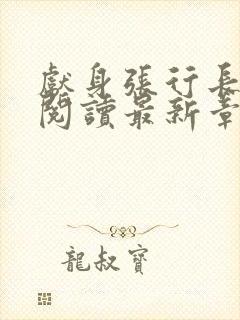 獻身張行長
閱讀最新章
龍叔寶